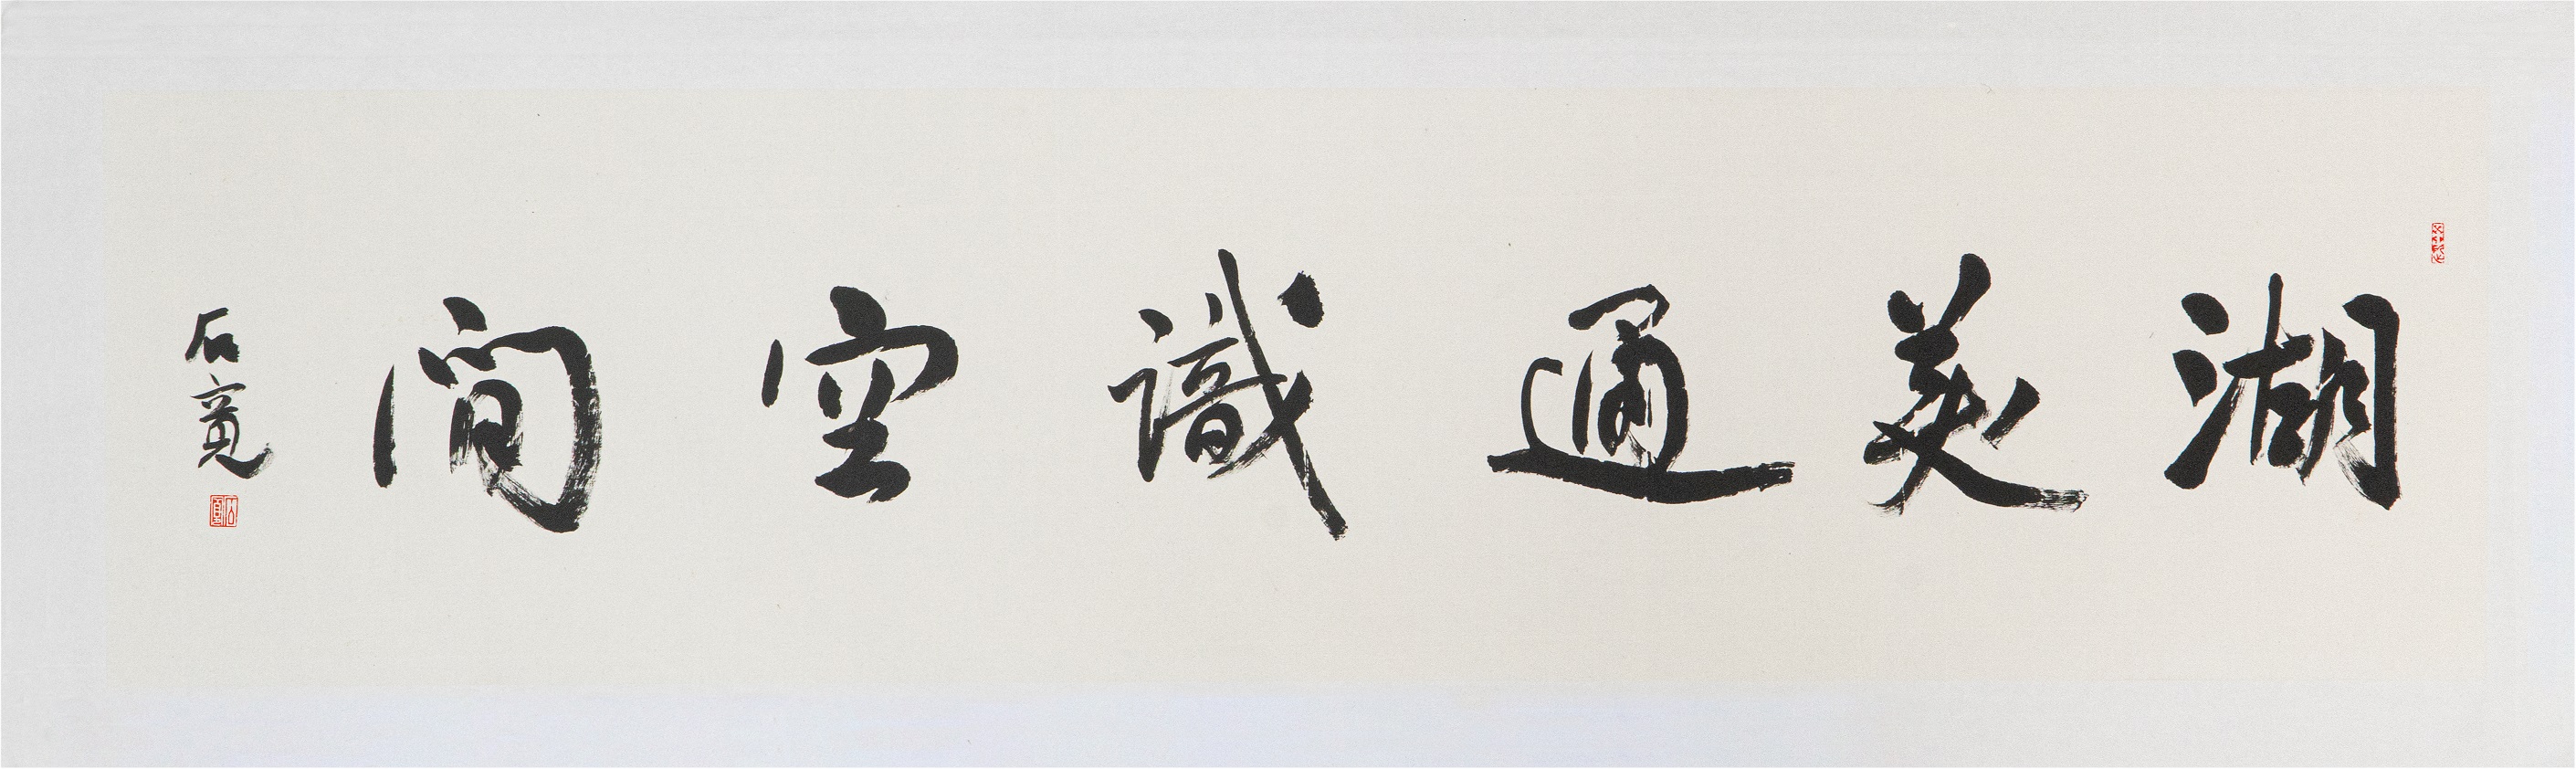 湖美通識空間
石